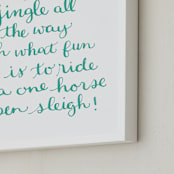 jingle all
the way
what fun
is to ride
a one horse
open sleigh!